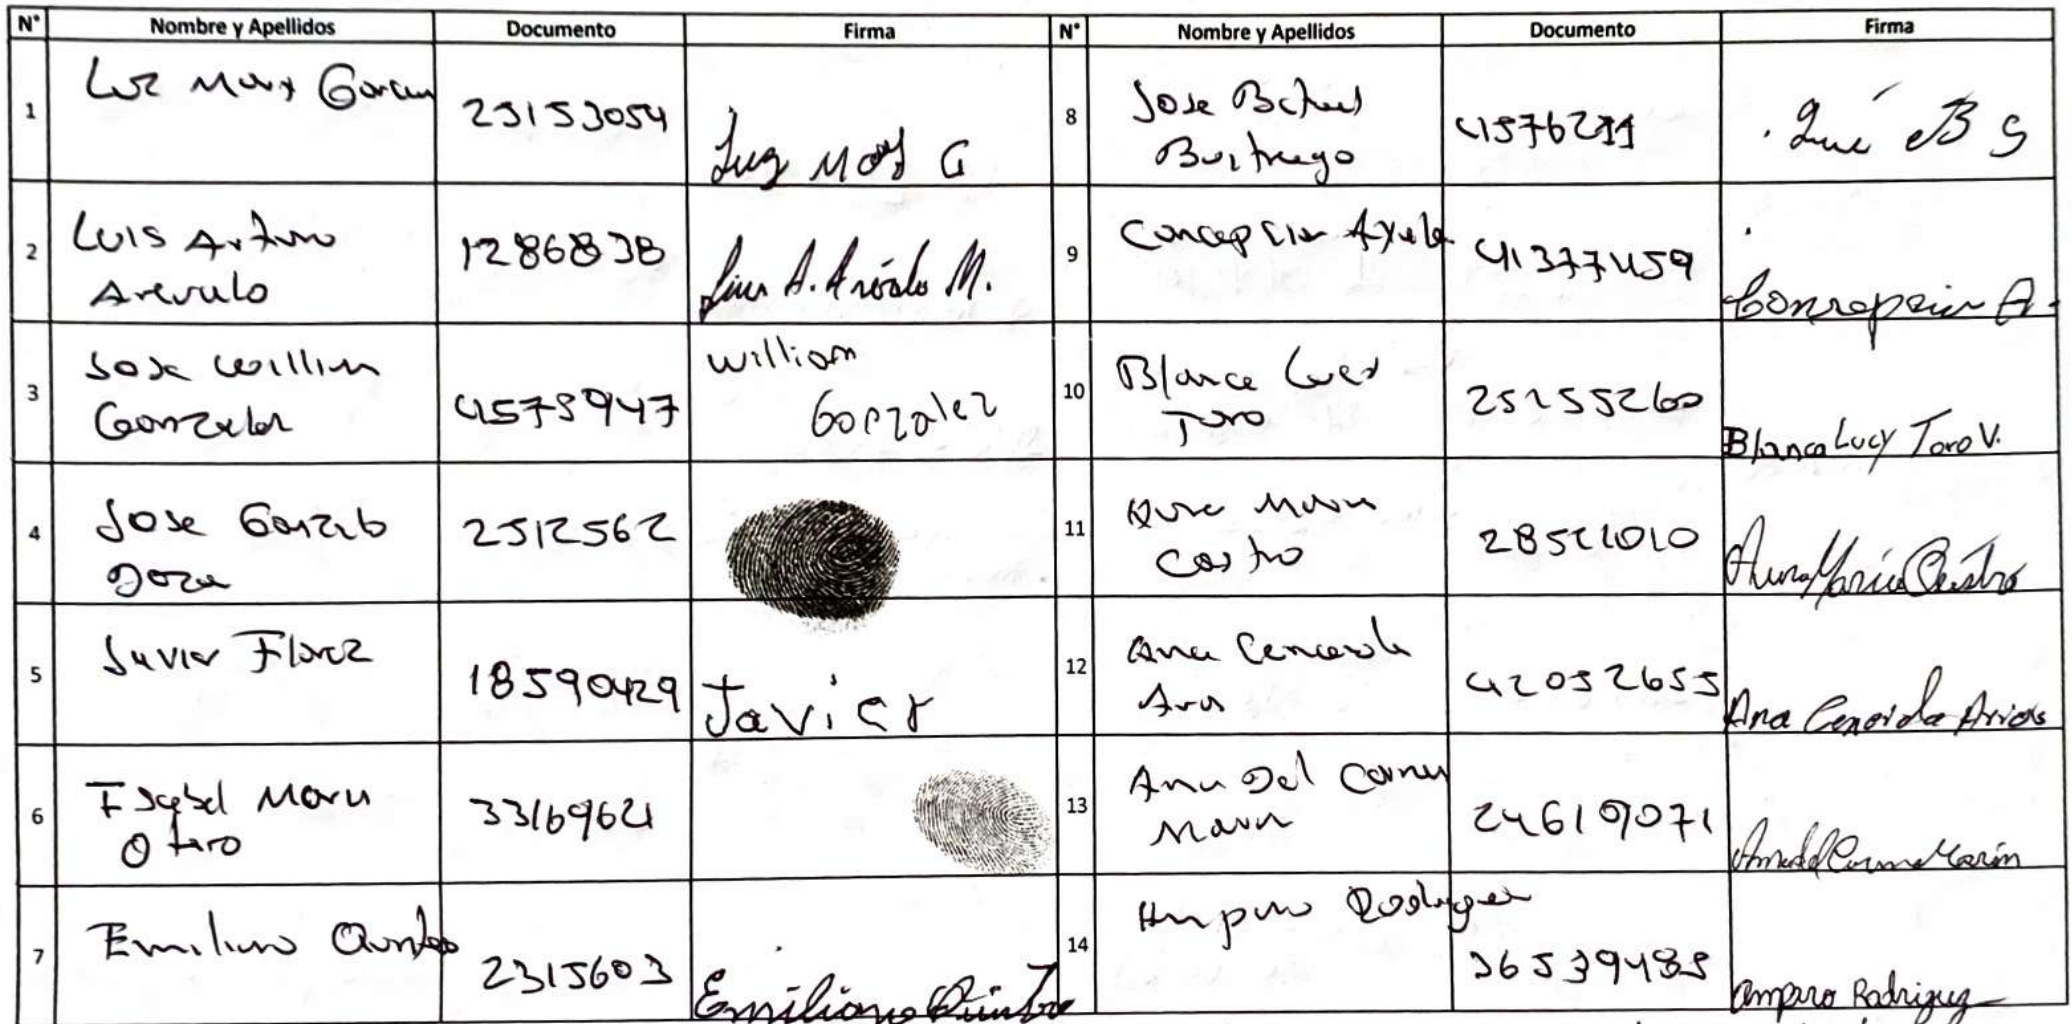 N° Nombre y Apellidos Documento Firma N° Nombre y Apellidos Documento Firma
1 Luz Mary Garcia 25153054 Luz Mary G
2 Luis Arturo Arevulo 1286838 Luis A. Arévalo M.
3 Jose Willian Gonzalez 4573947 William Gonzalez
4 Jose Gonzalo 2512562
5 Javier Florez 18590429 Javier
6 Isabel Maria Otero 33169621
7 Emiliano Quintero 2315603 Emiliano Quintero
8 Jose Buitrago José B
9 Concepcion 41377459 Concepcion A.
10 Blanca Lucy Toro 25155260 Blanca Lucy Toro V.
11 Aura Maria Castro 28521010 Aura María Castro
12 Ana Cenaida Arias 42052655 Ana Cenaida Arias
13 Ana Del Carmen Marin 24619071 Ana del Carmen Marín
14 Amparo Rodriguez 36539485 Amparo Rodriguez